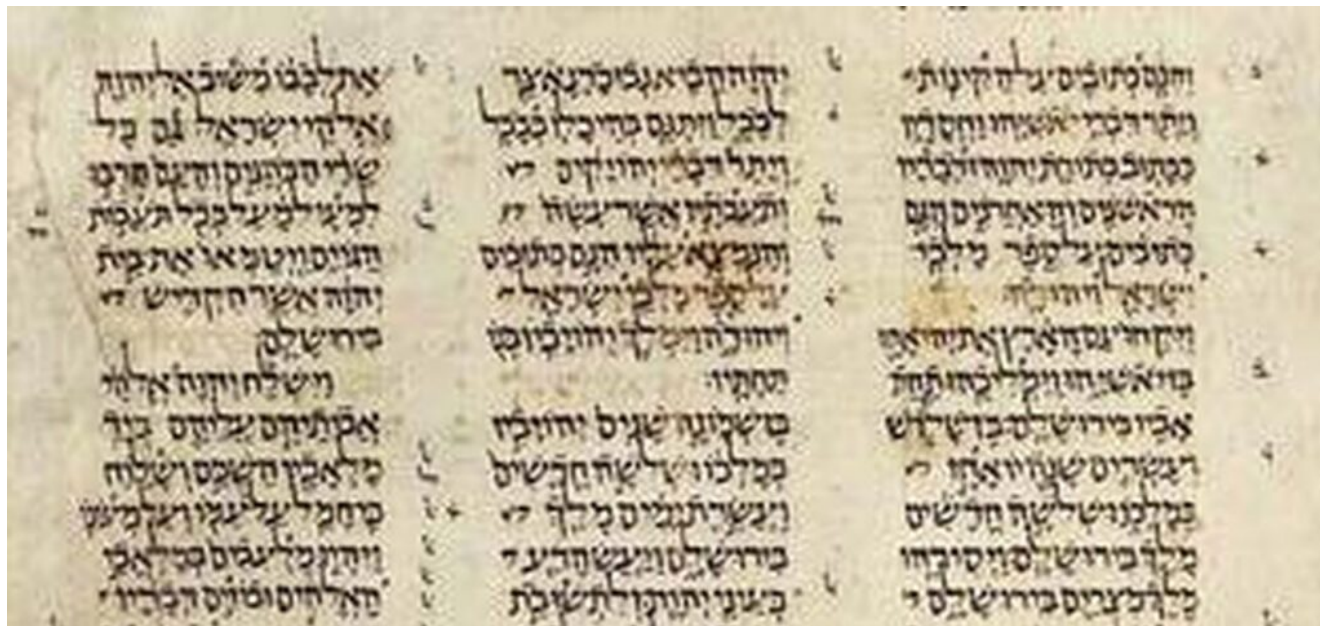 והנם כתובים על הקינות
ויתר דברי יאשיהו וחסדיו
ככתוב בתורת יהוה ודבריו
הראשנים והאחרנים הנם
כתובים על ספר מלכי
ישראל ויהודה
ויקחו עם הארץ את יהואחז
בן יאשיהו וימליכהו תחת
אביו בירושלם בן שלוש
ועשרים שנה יואחז
במלכו ושלשה חדשים
מלך בירושלם ויסירהו
מלך מצרים בירושלם
יהוה הביא נבוכדנאצר
לבבל ויתנם בהיכלו בבבל
ויתר דברי יהויקים
ותעבתיו אשר עשה
והנמצא עליו הנם כתובים
על ספר מלכי ישראל
ויהודה וימלך יהויכין בנו
תחתיו
בן שמונה שנים יהויכין
במלכו ושלשה חדשים
ועשרת ימים מלך
בירושלם ויעש הרע
בעיני יהוה ולתשובת
את לבבו משוב אל יהוה
אלהי ישראל גם כל
שרי הכהנים והעם הרבו
למעול מעל ככל תעבות
הגוים ויטמאו את בית
יהוה אשר הקדיש
בירושלם
וישלח יהוה אלהי
אבותיהם עליהם ביד
מלאכיו השכם ושלוח
כי חמל על עמו ועל מעונו
ויהיו מלעבים במלאכי
האלהים ובוזים דבריו